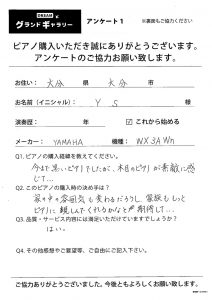 グランドギャラリー
アンケート1
※裏面もご協力ください
ピアノ購入いただき誠にありがとうございます。
アンケートのご協力お願い致します。
お住い： 大分 県 大分 市
お名前（イニシャル）： Y S 様
演奏歴： 年 ☑ これから始める
メーカー： YAMAHA 機種： WX3AWn
Q1. ピアノの購入経緯を教えてください。
今まで黒いピアノでしたが、木目のピアノが素敵に感
じて…
Q2. このピアノの購入時の決め手は？
家の中の雰囲気も変わるだろうし、家族もしっと
ピアノに親しんでくれるかなと 期待して…
Q3. 品質・サービス内容には満足いただけていますでしょうか？
はい。
Q4. その他感想やご要望等、ご自由にご記入下さい。
ご協力ありがとうございました。今後ともよろしくお願い致します。